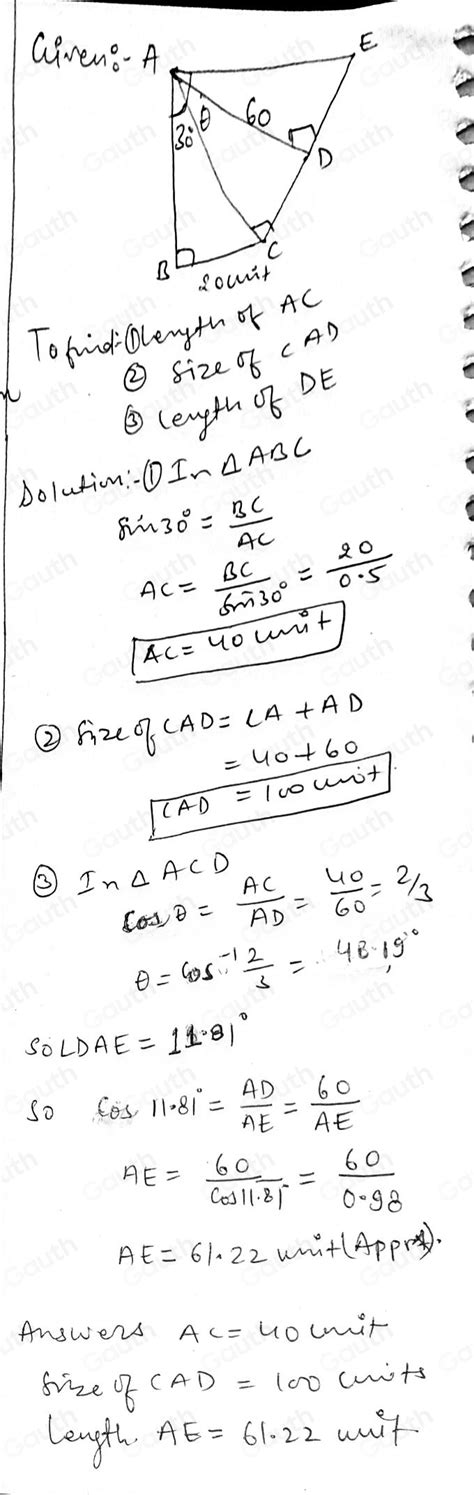 Given:- A
E
30°
θ
60
D
B
C
20 unit
To find:① length of AC
② size of CAD
③ length of DE
Solution:-① In ΔABC
sin30° = BC/AC
AC = BC/sin30° = 20/0.5
AC = 40 unit
② size of CAD = CA + AD
= 40+60
CAD = 100 unit
③ In Δ ACD
cos θ = AC/AD = 40/60 = 2/3
θ = cos⁻¹ 2/3 = 48.19°
SO LDAE = 11.81°
SO cos 11.81° = AD/AE = 60/AE
AE = 60/cos11.81 = 60/0.98
AE = 61.22 unit(Approx).
Answers AC = 40 unit
size of CAD = 100 units
length AE = 61.22 unit